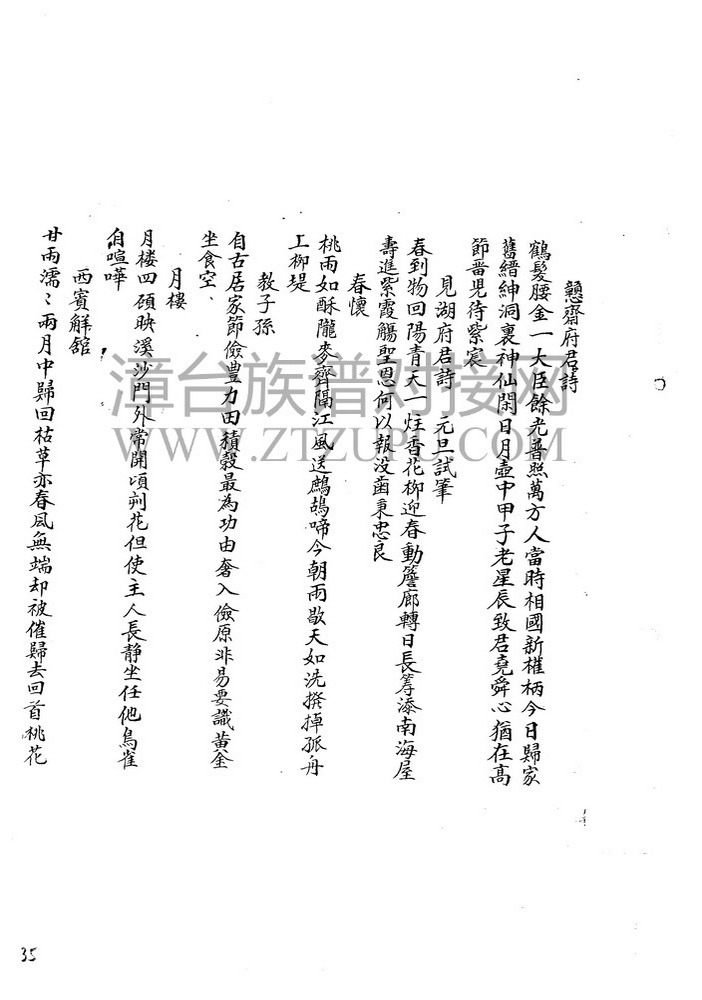 戇齋府君詩
鶴髮腰金一大臣餘光普照萬方人當時相國新權柄今日歸家
舊縉紳洞裏神仙閑日月壺中甲子老星辰致君堯舜心猶在高
節畨児待紫宸
見湖府君詩 元旦試筆
春到物回陽青天一炷香花柳迎春動簷廊轉日長筹添南海屋
壽進紫霞觴聖恩何以報没齒秉忠良
春懷
桃雨如酥隴麥齊隔江風送鷓鴣啼今朝雨歇天如洗撥掉孤舟
上柳堤
教子孫
自古居家節儉豊力田積穀最為功由奢入儉原非易要識黃金
坐食空、
月樓
月楼四碩映溪沙門外常開頃刻花但使主人長静坐任他鳥雀
自喧嘩
西賓觧舘
甘雨濡〻兩月中歸回枯草亦春風無端却被催歸去回首桃花
漳台族谱对接网
WWW.ZTZUPU.COM
35